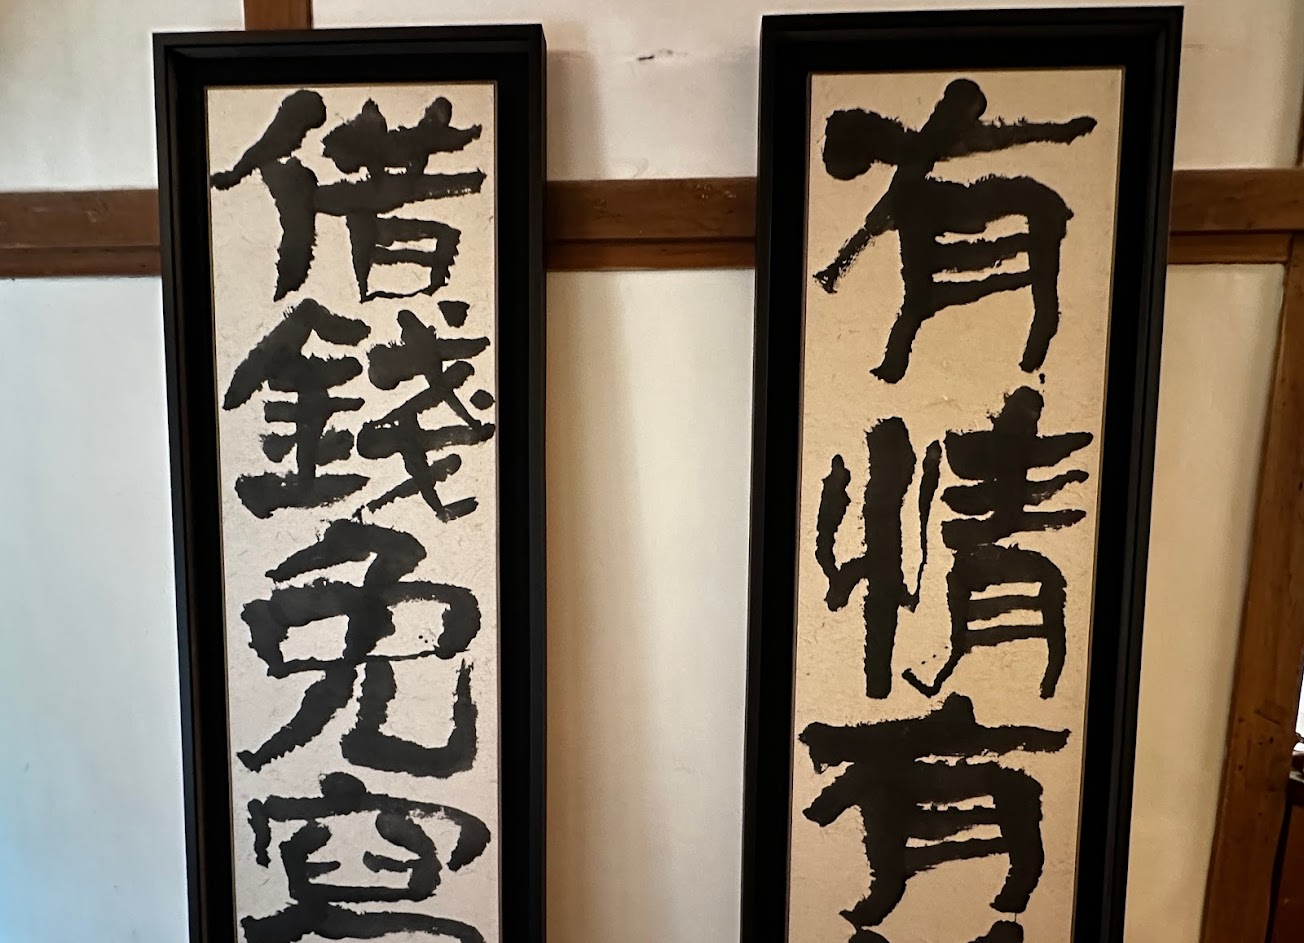 有情有
借錢免